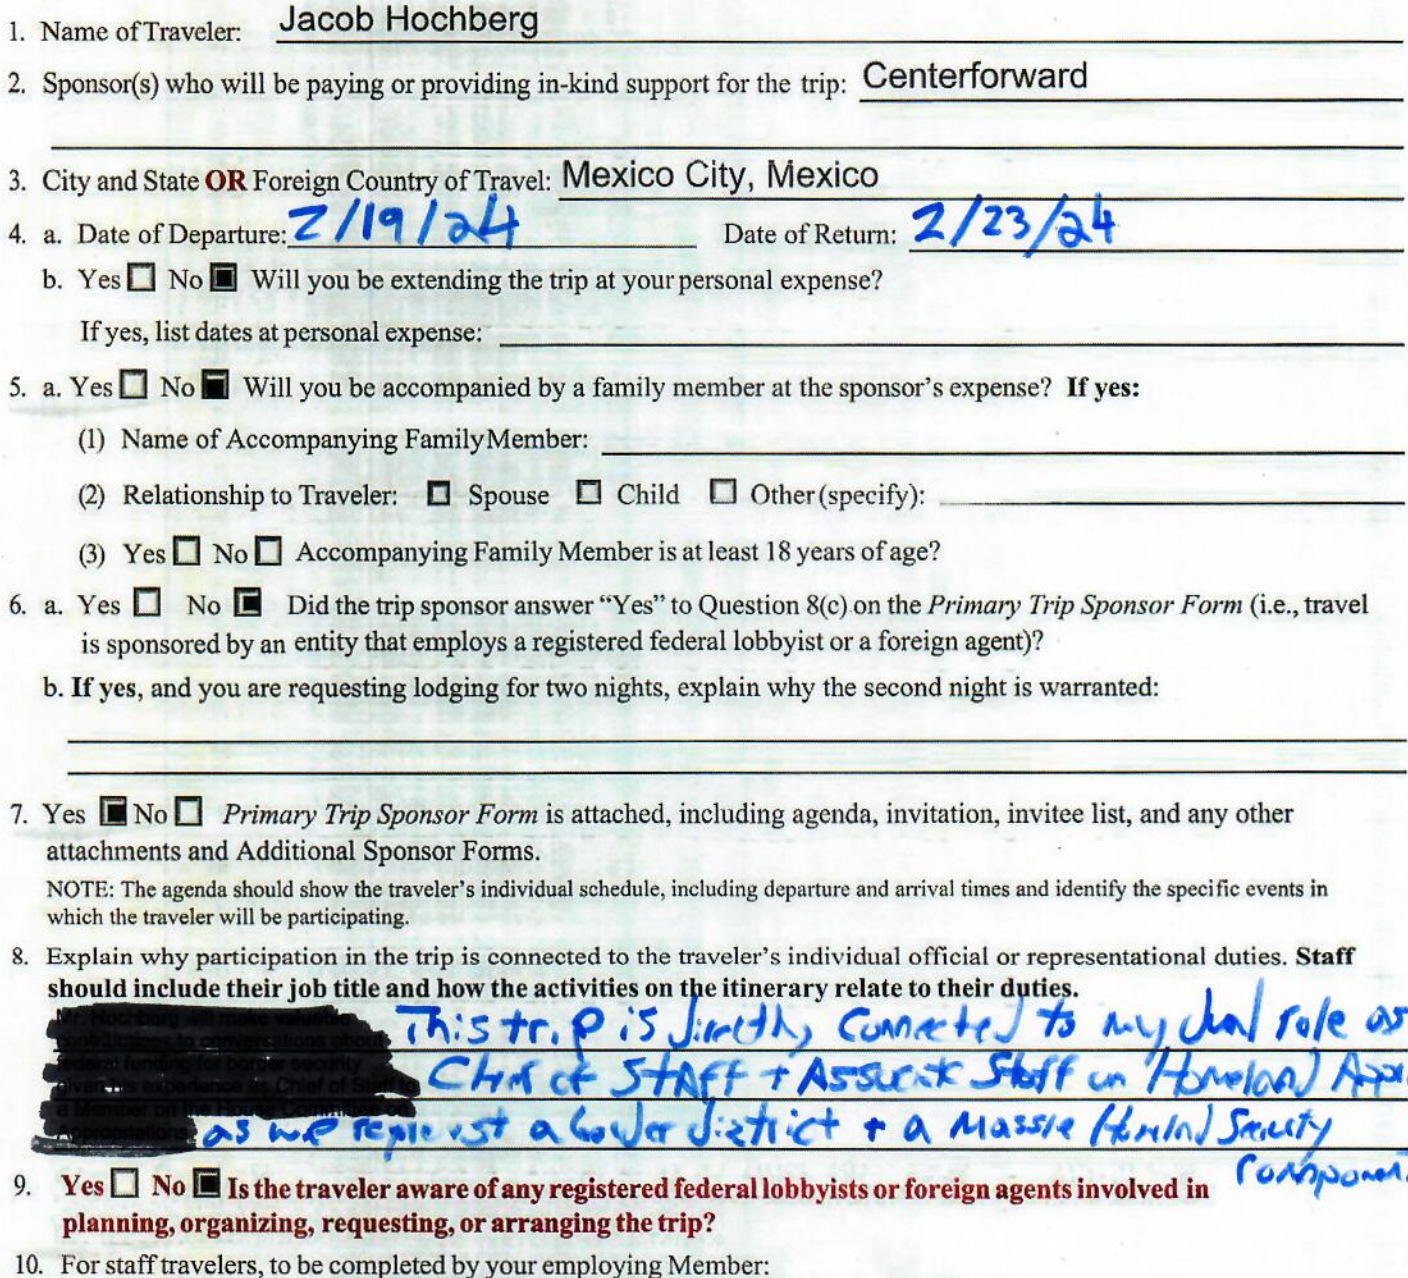 1. Name of Traveler: Jacob Hochberg
2. Sponsor(s) who will be paying or providing in-kind support for the trip: Centerforward
3. City and State OR Foreign Country of Travel: Mexico City, Mexico
4. a. Date of Departure: 2/19/24 Date of Return: 2/23/24
b. Yes No Will you be extending the trip at your personal expense?
If yes, list dates at personal expense:
5. a. Yes No Will you be accompanied by a family member at the sponsor's expense? If yes:
(1) Name of Accompanying Family Member:
(2) Relationship to Traveler: Spouse Child Other (specify):
(3) Yes No Accompanying Family Member is at least 18 years of age?
6. a. Yes No Did the trip sponsor answer “Yes” to Question 8(c) on the Primary Trip Sponsor Form (i.e., travel
is sponsored by an entity that employs a registered federal lobbyist or a foreign agent)?
b. If yes, and you are requesting lodging for two nights, explain why the second night is warranted:
7. Yes No Primary Trip Sponsor Form is attached, including agenda, invitation, invitee list, and any other
attachments and Additional Sponsor Forms.
NOTE: The agenda should show the traveler's individual schedule, including departure and arrival times and identify the specific events in
which the traveler will be participating.
8. Explain why participation in the trip is connected to the traveler's individual official or representational duties. Staff
should include their job title and how the activities on the itinerary relate to their duties.
Mr. Hochberg will make valuable
contributions to conversations about
federal funding for border security
given his experience as Chief of Staff to
a Member on the House Committee on
Appropriations
This trip is directly connected to my dual role as
Chief of Staff + Associate Staff on Homeland
as we represent a border district + a Massive Homeland Security
component
9. Yes No Is the traveler aware of any registered federal lobbyists or foreign agents involved in
planning, organizing, requesting, or arranging the trip?
10. For staff travelers, to be completed by your employing Member: